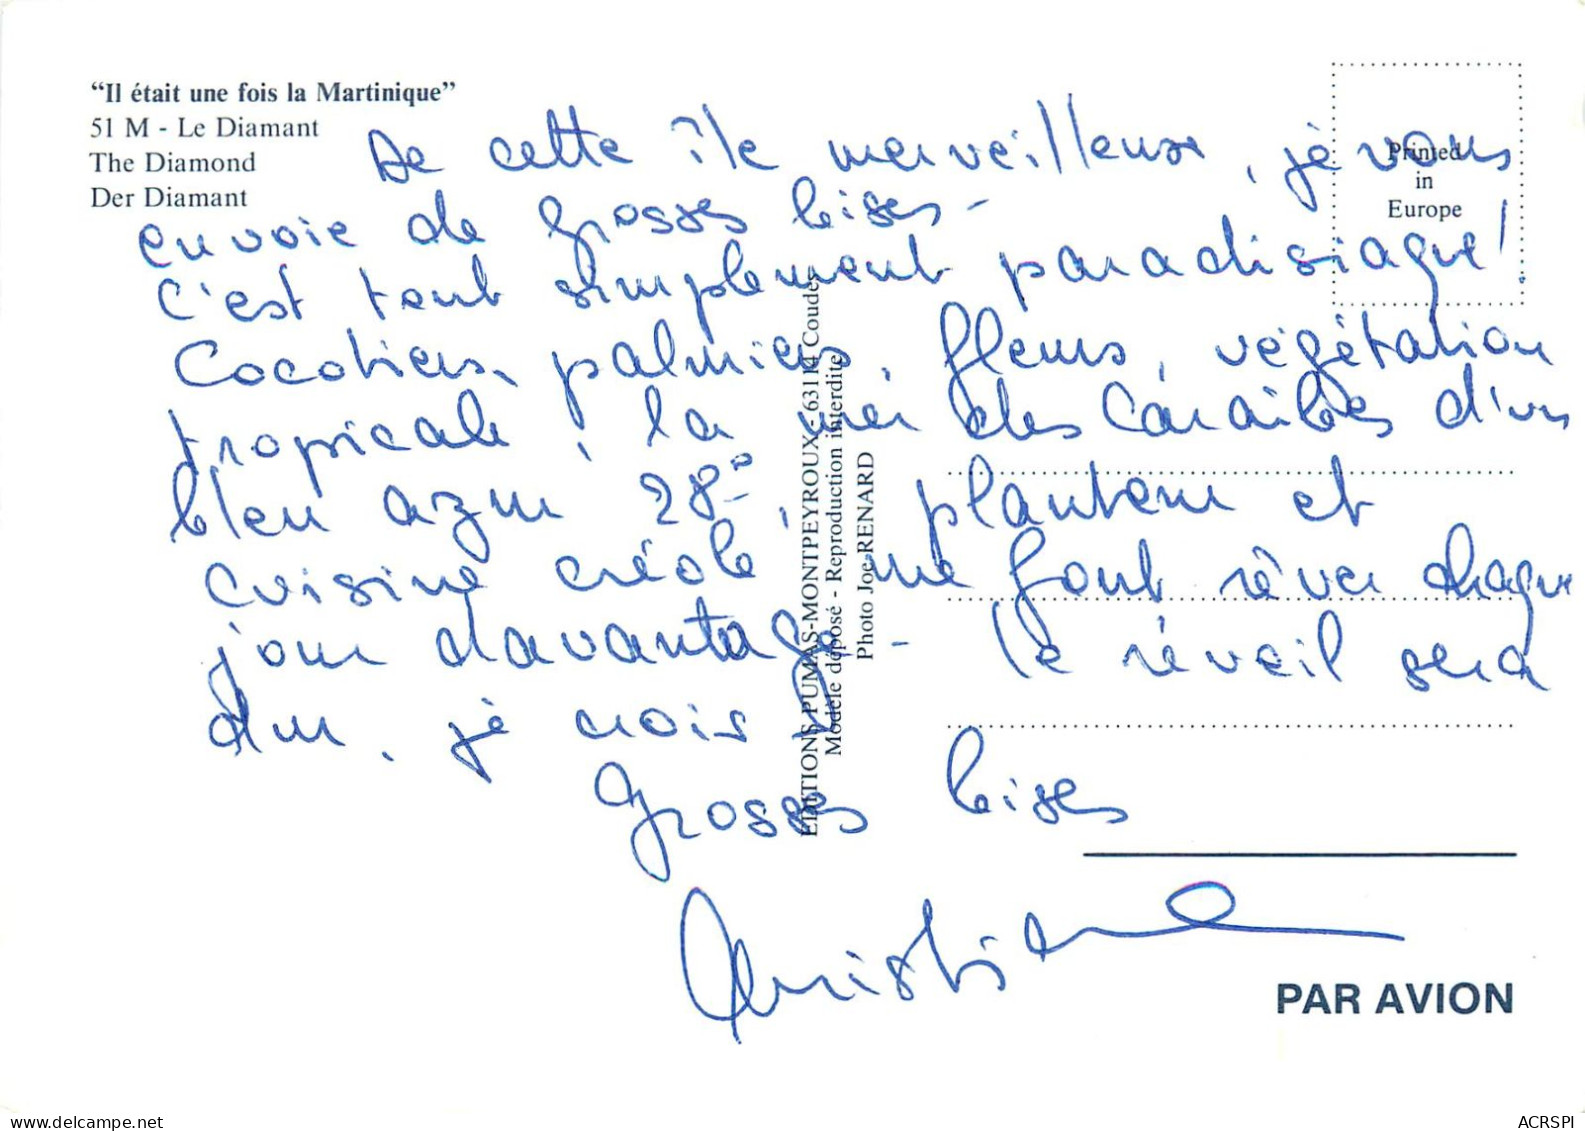 “Il était une fois la Martinique”
51 M - Le Diamant
The Diamond
Der Diamant
Printed
in
Europe
De cette île merveilleuse, je vous
envoie de grosses bises -
C'est tout simplement paradisiaque!
Cocotiers, palmiers, fleurs, végétation
tropicale, la mer des Caraïbes d'un
bleu azur 28°, planteur et
cuisine créole, me font rêver chaque
jour davantage - le réveil sera
dur, je crois!
Grosses bises
Christiane
EDITIONS PUMAS-MONTPEYROUX - 63114 Coudes
Modèle déposé - Reproduction interdite
Photo Joe RENARD
PAR AVION
www.delcampe.net
ACRSPI